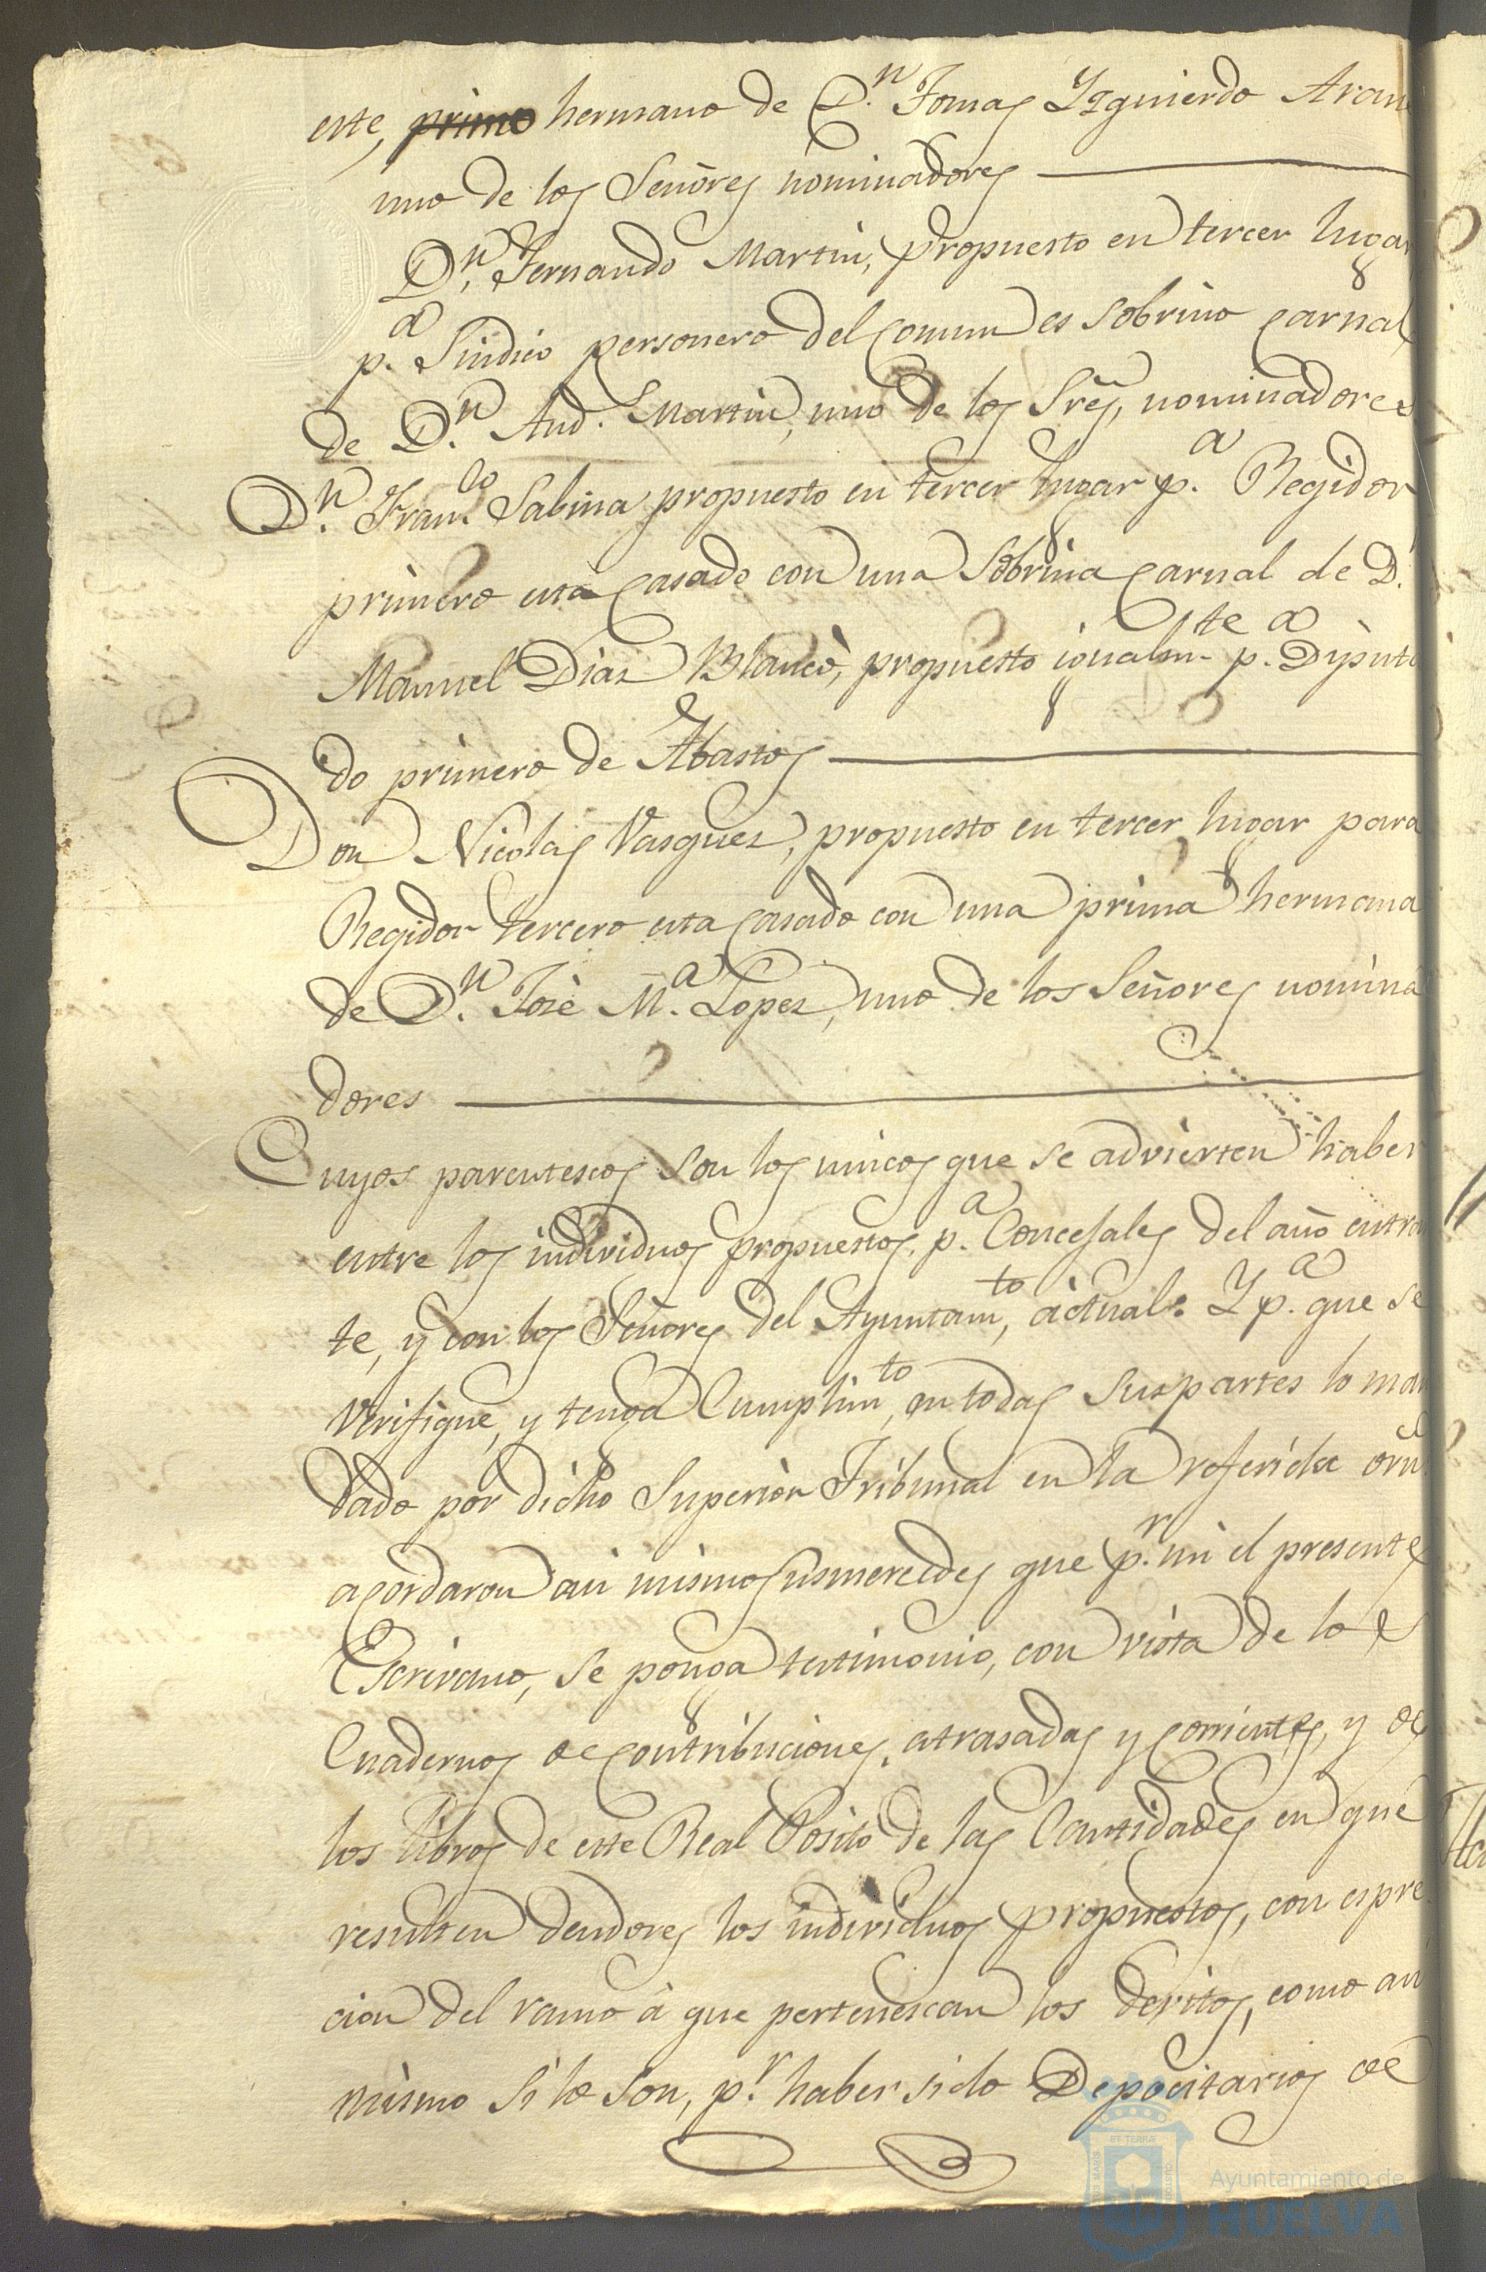 este, primo hermano de D.n Tomas Yzquierdo Aran
uno de los Señores nominadores
D.n Fernando Martin, propuesto en tercer lugar
p.a Sindico personero del Comun es sobrino carnal
de D.n And.s Martin, uno de los Sres, nominadores
D.n Fran.co Sabina propuesto en tercer lugar p.a Regidor
primero esta casado con una Sobrina carnal de D.
Manuel Diaz Blanco, propuesto igualm.te p.a Diputa
do primero de Abastos
Don Nicolas Vasquez, propuesto en tercer lugar para
Regidor tercero esta casado con una prima hermana
de D.n José M.a Lopez, uno de los Señores nomina
dores
Cuyos parentescos son los unicos que se advierten haber
entre los individuos propuestos p.a Concejales del año entra
te, y con los Señores del Ayuntam.to actual. Y p.a que se
verifique, y tenga Cumplim.to en todas sus partes lo man
dado por dicho Superior Tribunal en la referida orn
acordaron asi mismo Susmercedes que p.r mi el presente
Escrivano, se ponga testimonio, con vista de los
Cuadernos de contribuciones, atrasadas y corrientes, y de
los libros de este Real Posito de las Cantidades en que
resulten deudores los individuos propuestos, con espre
cion del ramo á que pertenescan los devitos, como asi
mismo si lo son, p.r haber sido Depocitarios de
Ayuntamiento de
HUELVA